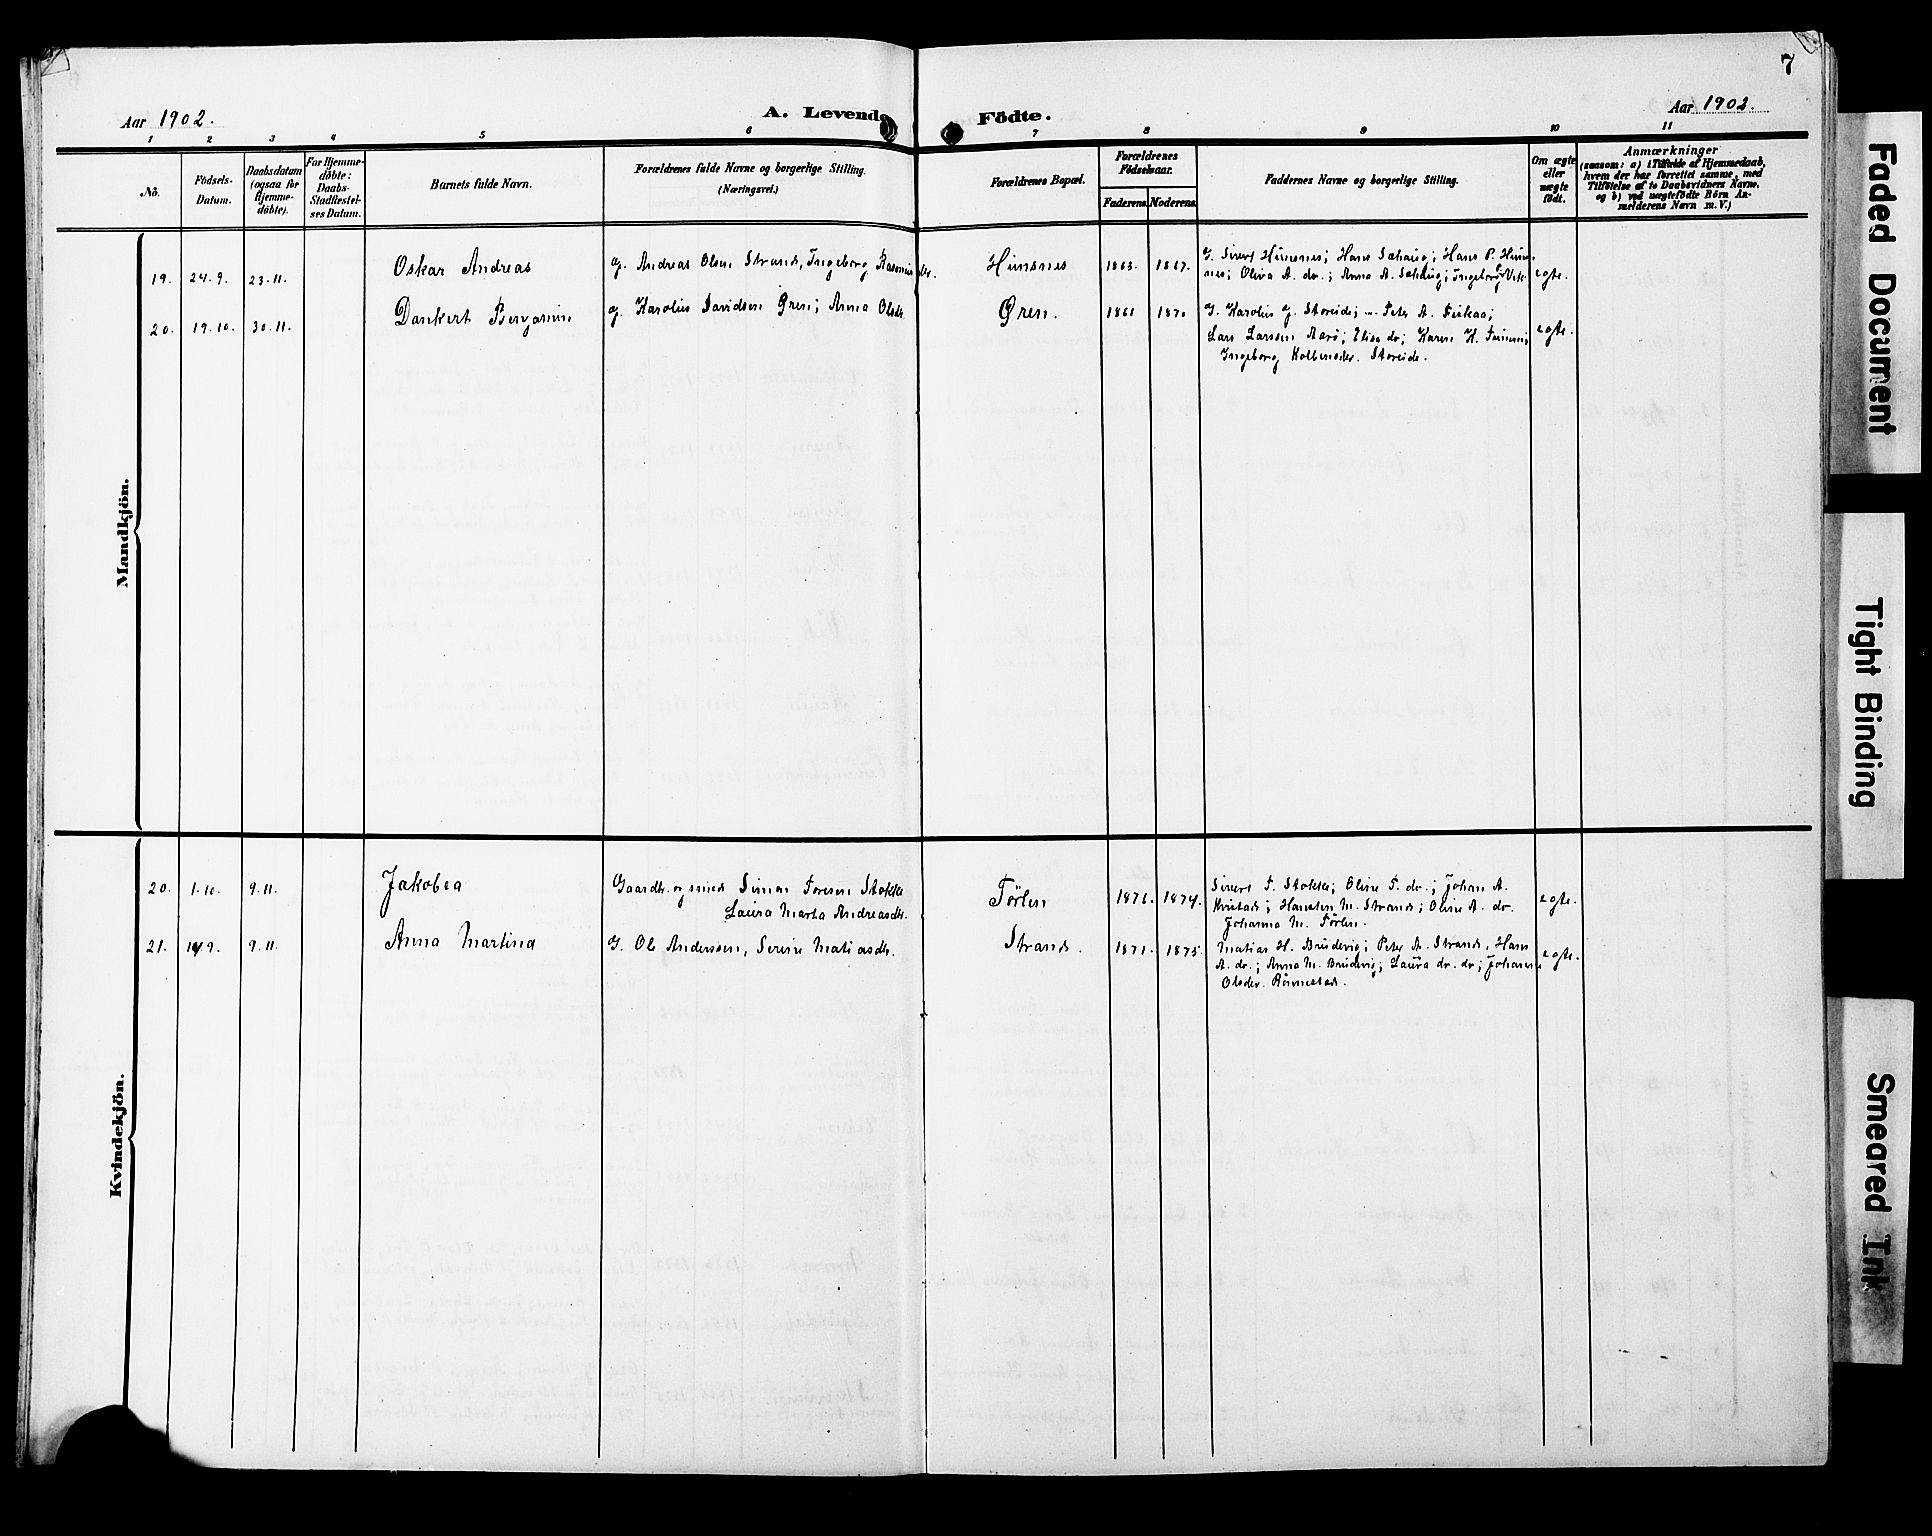 7
Aar 1902.
A. Levende Födte.
Aar 1902.
1 2 3 4 5 6 7 8 9 10 11
No.
Födsels-Datum.
Daabsdatum (ogsaa for Hjemme-döbte).
For Hjemme-döbte: Daabs-Stadfæstel-ses Datum.
Barnets fulde Navn.
Forældrenes fulde Navne og borgerlige Stilling. (Næringsvei.)
Forældrenes Bopæl.
Forældrenes Födselsaar.
Faderens. Moderens.
Faddernes Navne og borgerlige Stilling.
Om ægte eller uægte födt.
Anmærkninger
(saasom: a) i Tilfælde af Hjemmedaab,
hvem der har forrettet samme, med
Tilföielse af to Daabsvidners Navne,
og b) ved uægtefödte Börn An-
melderens Navn m. V.)
Mandkjön.
19. 24.9. 23.11. Oskar Andreas g. Andreas Olsen Strand, Ingeborg Rasmusdr. Hunsnes 1863. 1867. G. Sivert Hunsnes; Hans Sahaug; Hans P. Huns-
nes; Oliva A. dr.; Anna A. Sahaug; Ingeborg Vik. egte.
20. 19.10. 30.11. Dankert Benjamin g. Karolius Davidsen Øren; Anna Olsdr. Øren. 1861 1870 G. Karolius g. Storeide; Peter A. Fiskaa;
Lars Larssen Aarö; Elise dr; Karen H.
Ingeborg Kolbensdr. Storeide. egte.
Kvindekjön.
20. 1.10. 9.11. Jakobea Gaardbr. og smed Simon Toresen Stokke
Laura Marta Andreasdr. Tørlen 1876. 1874. Sivert T. Stokke; Oline T. dr.; Johan A.
Kvistad; Hansten M. Strand; Oline A. dr.
Johanna M. Tørlen. egte.
21. 14.9. 9.11. Anna Martina G. Ole Anderssen, Serine Matiasdr. Strand. 1871. 1875. Matias H. Brudevig; Peter A. Strand, Hans
A. dr.; Anna M. Brudevig; Laura dr. dr; Johanne
Olsdr. Rönnestad. egte.
Faded Document
Tight Binding
Smeared Ink